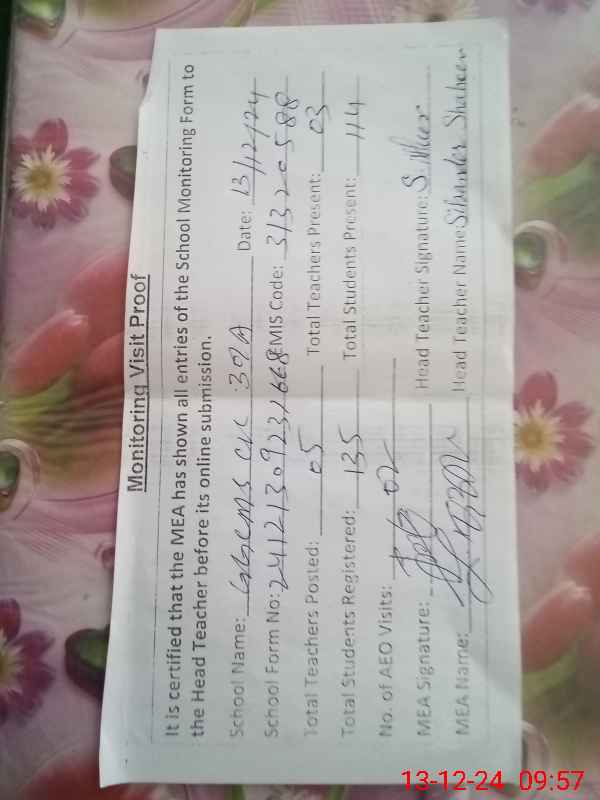 Monitoring Visit Proof
It is certified that the MEA has shown all entries of the School Monitoring Form to
the Head Teacher before its online submission.
School Name: GGCMS Date: 13/12/24
School Form No: EMIS Code: 31320588
Total Teachers Posted: 05 Total Teachers Present: 03
Total Students Registered: 135 Total Students Present: 114
No. of AEO Visits: 02
MEA Signature: Head Teacher Signature:
MEA Name: Head Teacher Name: Shaheen
13-12-24 09:57